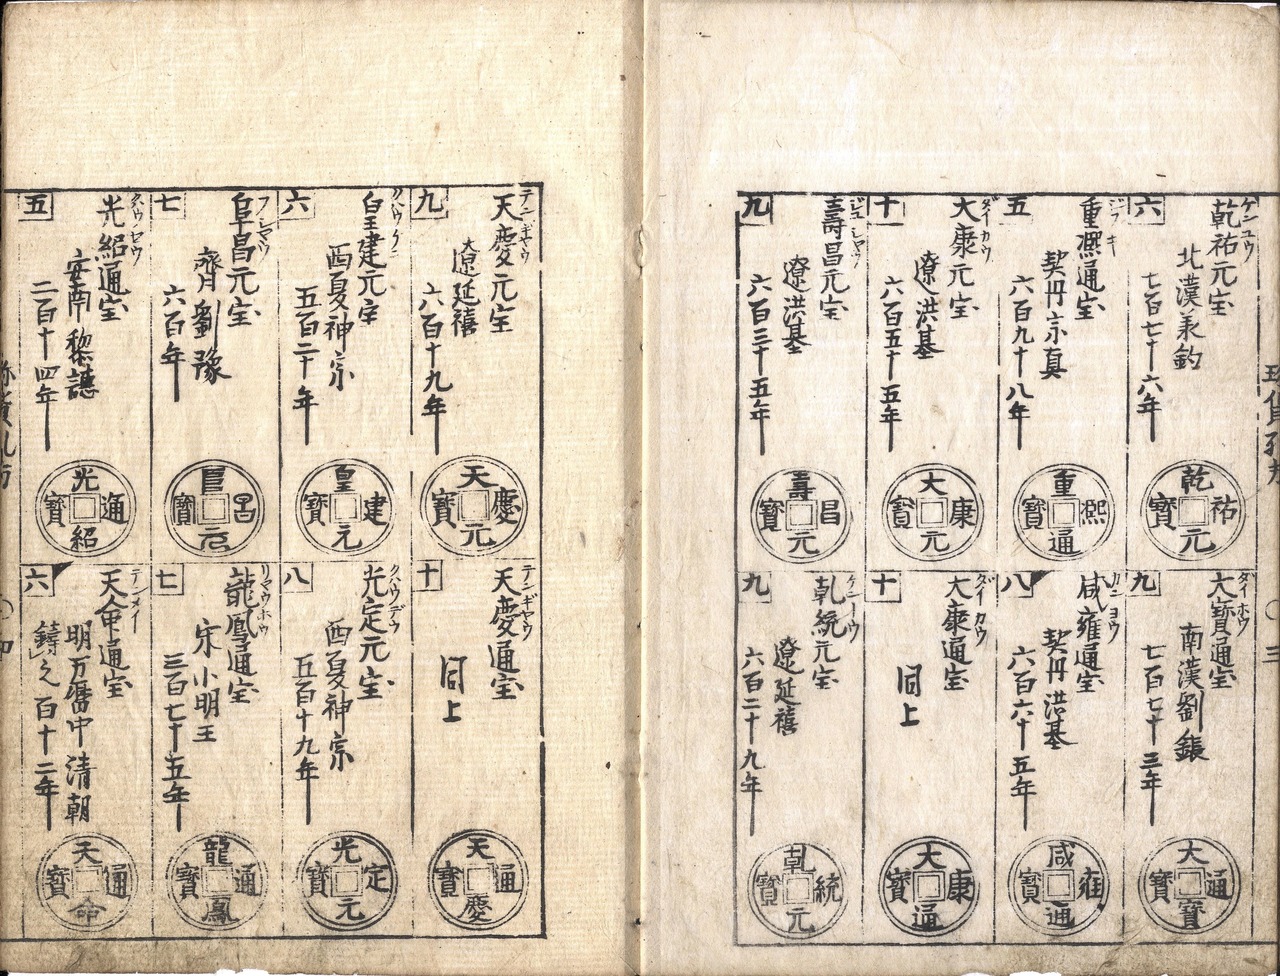 六
ケンユウ
乾祐元宝
北漢承鈞
七百七十六年
乾祐元寶
五
重熈通宝
契丹宗真
六百九十八年
重熈通寶
十
ダイカウ
大康元宝
遼洪基
六百五十五年
大康元寶
九
壽昌元宝
遼洪基
六百三十五年
壽昌元寶
九
ダイホウ
大寳通宝
南漢劉鋹
七百七十三年
大寳通寶
八
カンヨウ
咸雍通宝
契丹洪基
六百六十五年
咸雍通寶
十
ダイカウ
大康通宝
同上
大康通寶
九
乾統元宝
遼延禧
六百二十九年
乾統元寶
九
テンギヤウ
天慶元宝
遼延禧
六百十九年
天慶元寶
六
皇建元宝
西夏神宗
五百二十年
皇建元寶
七
阜昌元宝
齊劉豫
六百年
阜昌元寶
五
光紹通宝
安南黎譓
二百十四年
光紹通寶
十
テンギヤウ
天慶通宝
同上
天慶通寶
八
光定元宝
西夏神宗
五百十九年
光定元寶
七
リヤウホウ
龍鳳通宝
宋小明王
三百七十五年
龍鳳通寶
六
テンメイ
天命通宝
明万暦中清朝
鑄之百十二年
天命通寶